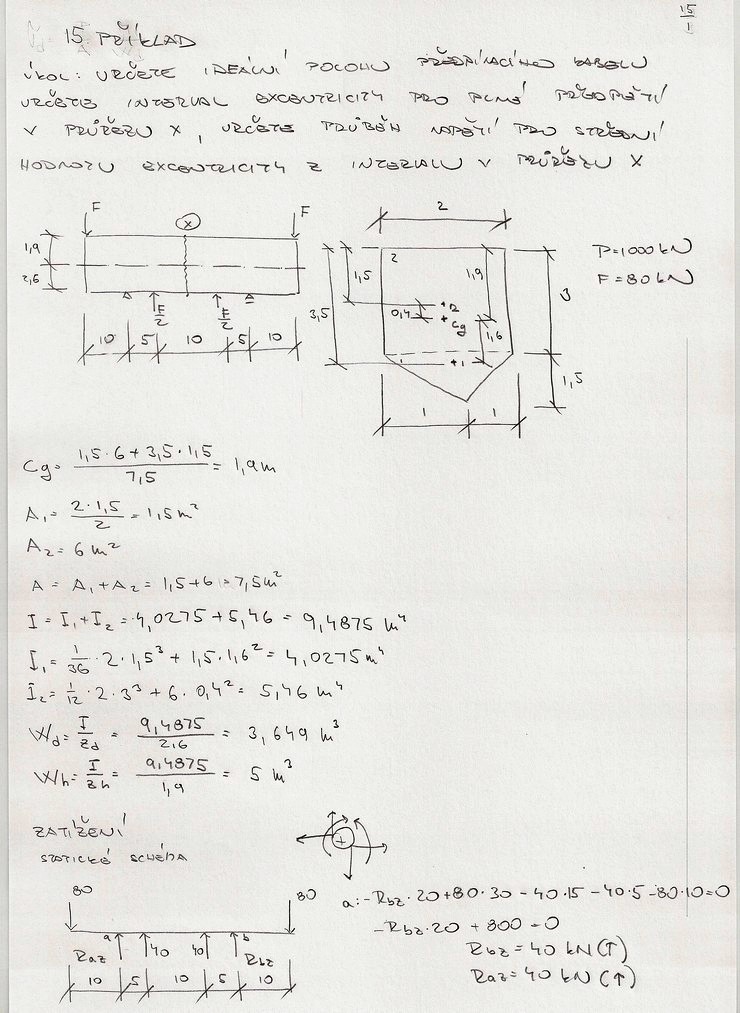 15
1
15. PŘÍKLAD
ÚKOL: URČETE IDEÁLNÍ POLOHU PŘEDPÍNACÍHO KABELU
URČETE INTERVAL EXCENTRICITY PRO PLNÉ PŘEDPĚTÍ
V PRŮŘEZU X, URČETE PRŮBĚH NAPĚTÍ PRO STŘEDNÍ
HODNOTU EXCENTRICITY Z INTERVALU V PRŮŘEZU X
F X F
1,9
2,6
F/2 F/2
10 5 10 5 10
2
2
1,5 1,9
3,5 0,4 2 Cg 1,6 3
1 1,5
1 1
P=1000kN
F=80kN
Cg= (1,5·6+3,5·1,5)/7,5 = 1,9m
A₁= (2·1,5)/2 = 1,5m²
A₂= 6m²
A= A₁+A₂= 1,5+6=7,5m²
I= I₁+I₂= 4,0275+5,46= 9,4875 m⁴
I₁= 1/36·2·1,5³+1,5·1,6²= 4,0275m⁴
I₂= 1/12·2·3³+6·0,4²= 5,46 m⁴
Wd= I/zd = 9,4875/2,6 = 3,649 m³
Wh= I/zh = 9,4875/1,9 = 5 m³
ZATÍŽENÍ
STATICKÉ SCHÉMA
+
80 80
a b
Raz 40 40 Rbz
10 5 10 5 10
a:-Rbz·20+80·30-40·15-40·5-80·10=0
-Rbz·20+800=0
Rbz=40 kN(↑)
Raz=40 kN(↑)